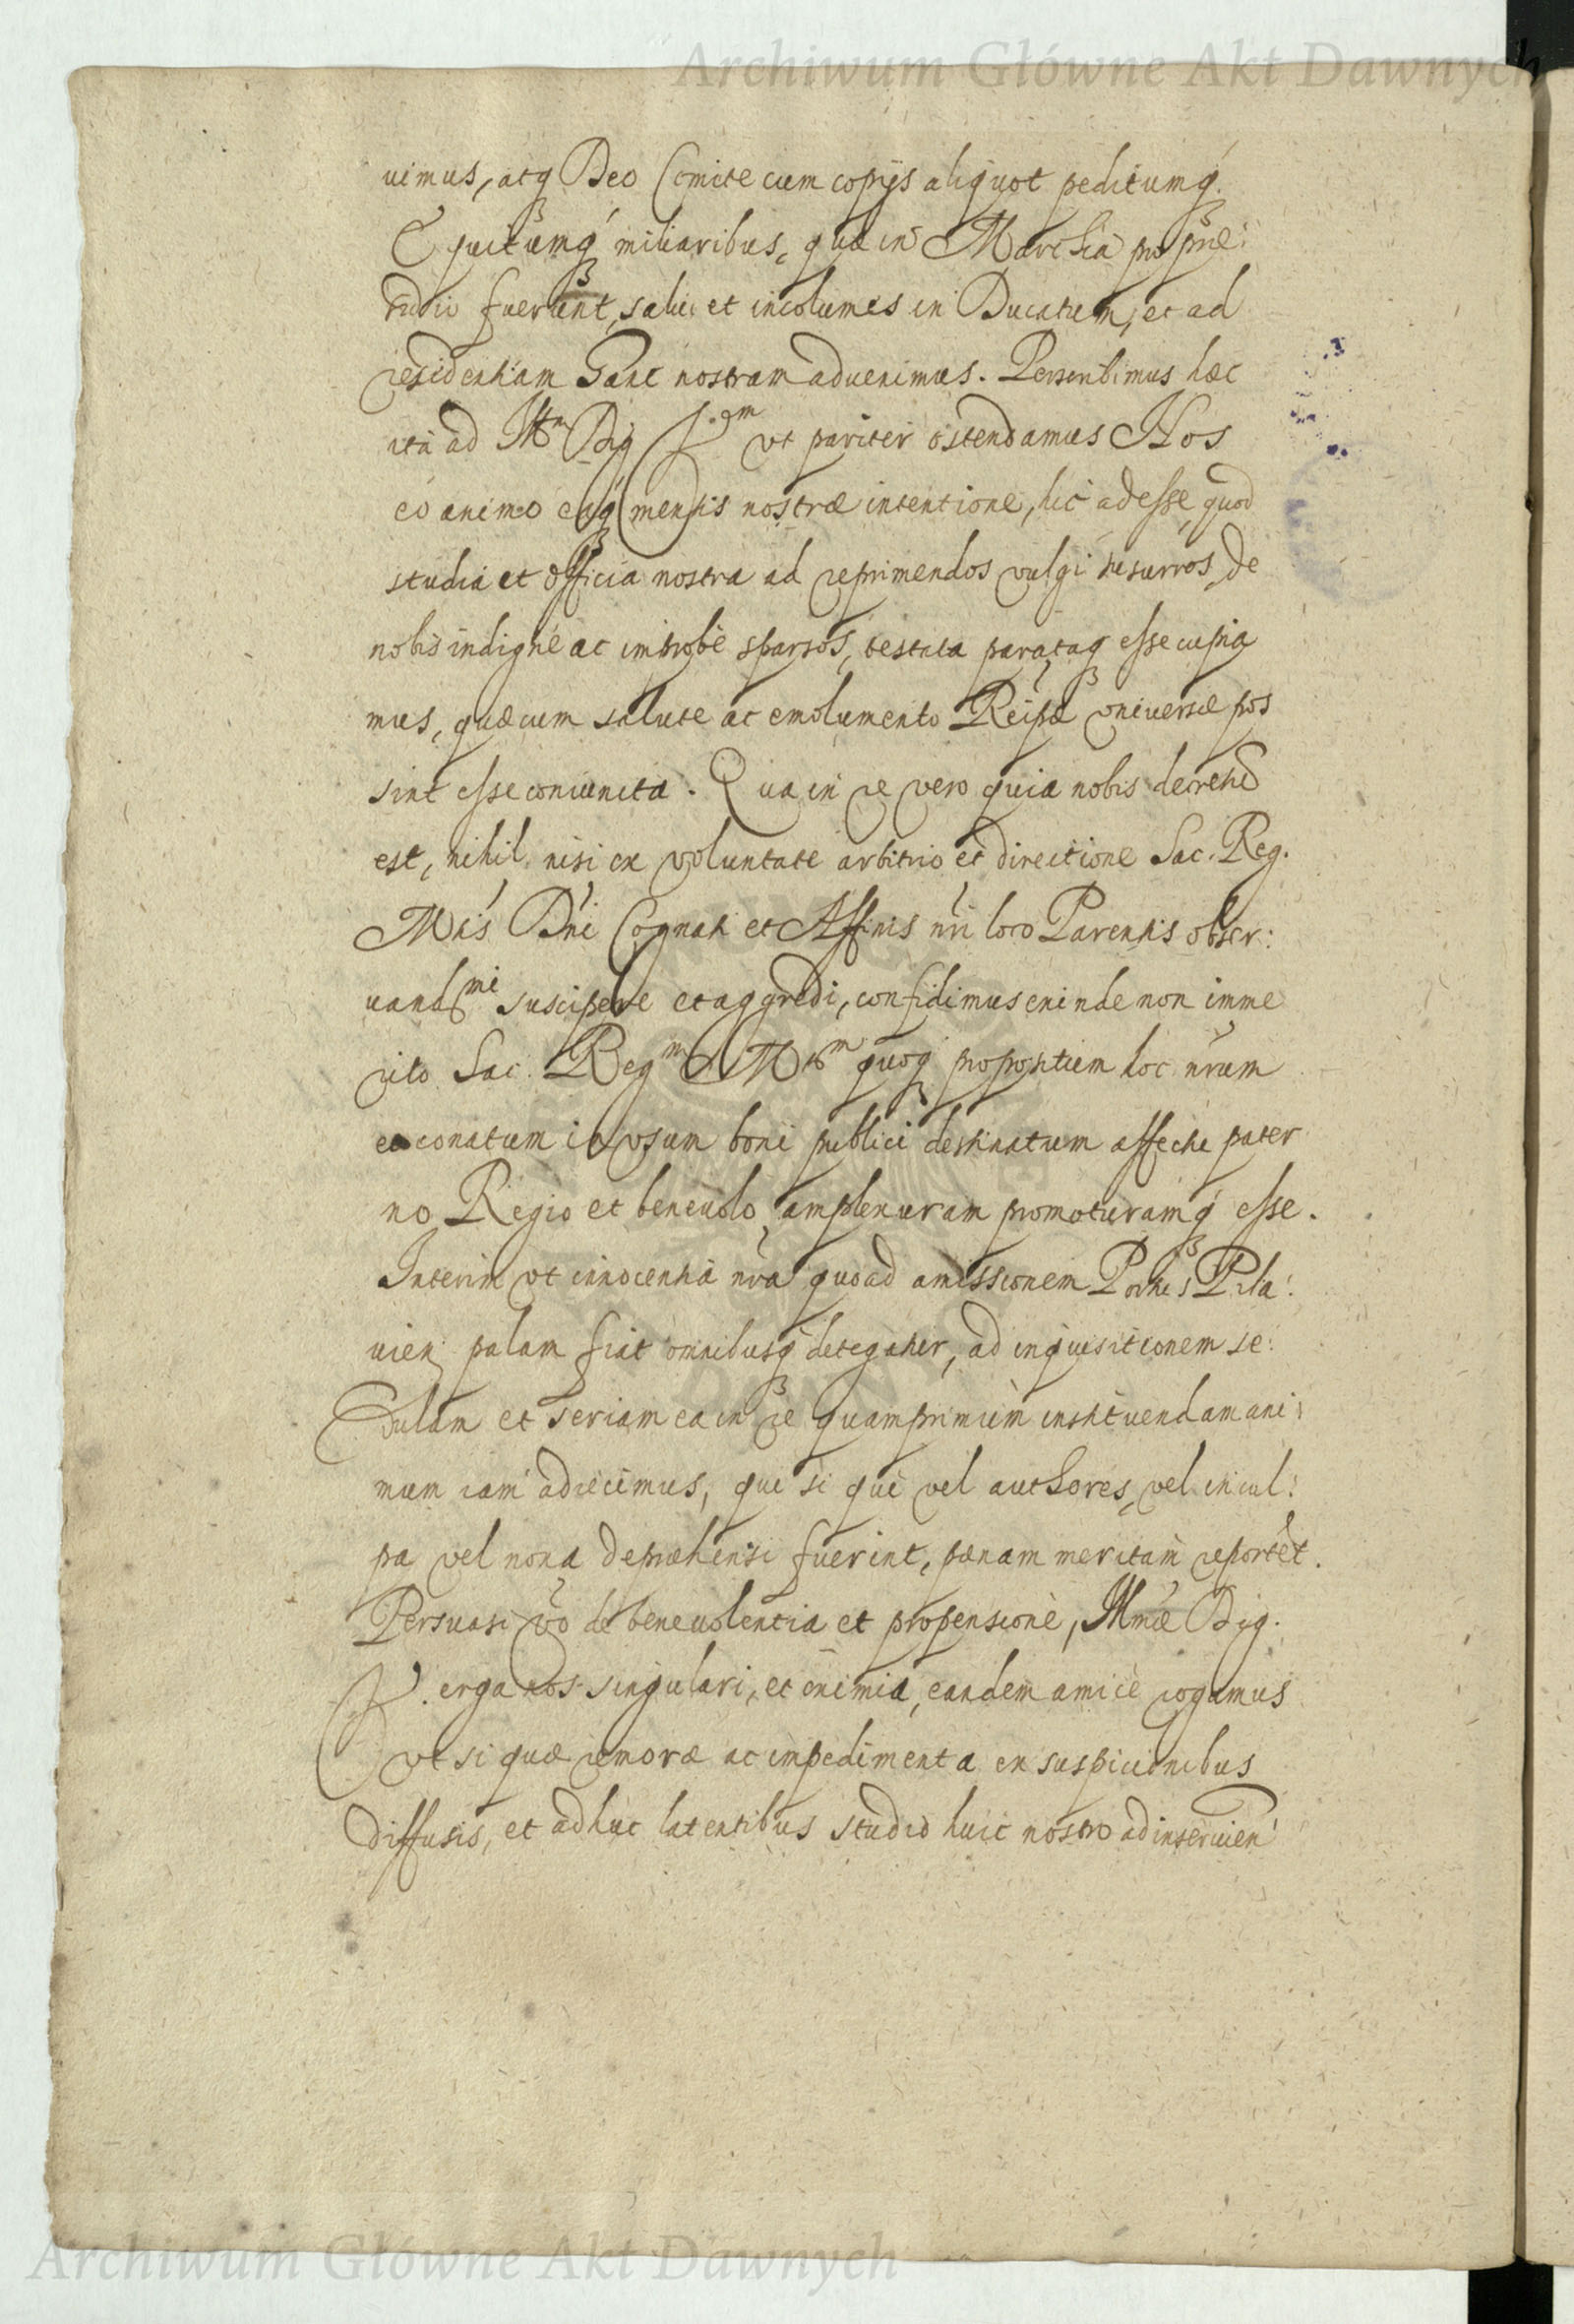 Archiwum Główne Akt Dawnych
uimus, atq₃ Deo Comite cum copijs aliquot peditumq́₃
Equitumq́₃ miliaribus, quæ in Marchia pro præ:
sidio fuerunt, salui et incolumes in Ducatum, et ad
residentiam hanc nostram aduenimus. Perscribimus hæc
ita ad Illm Dig V.rm vt pariter ostendamus Nos
eo animo eaq́₃ mentis nostræ intentione, hic adesse, quod
studia et officia nostra ad reprimendos vulgi susurros, de
nobis indignè ac improbè sparsos, testata parataq₃ esse cupia
mus, quæ cum salute ac emolumento Reipæ vniuersæ pos
sint esse coniuncta. Qua in re vero quia nobis decretũ
est, nihil nisi ex voluntate arbitrio et directione Sac. Reg.
Mtis Dni Cognati et Affinis nri loco Parentis obser:
uandmi suscipere et aggredi, confidimus exinde non imme
rito Sac. Regm Mtem quoq₃ propositum hoc nrum
et conatum in vsum boni publici destinatum affectu pater
no Regio et beneuolo, amplexuram promoturamq́₃ esse.
Interim vt innocentia nra quoad amissionem Portus Pila:
uien: palam fiat omnibusq₃ detegatur, ad inquisitionem se:
dulam et seriam ea in re quamprimùm instituendam ani:
mum iam adiecimus, qui si qui vel authores, vel in cul:
pa vel noxa depræhensi fuerint, pœnam meritam reportẽt.
Persuasi vo de beneuolentia et propensione, Illmæ Dig.
V. erga nos singulari, et eximia, eandem amicè rogamus
vt si quæ remoræ ac impedimenta ex suspicionibus
diffusis, et adhuc latentibus studio huic nostro ad inseruien
Archiwum Główne Akt Dawnych